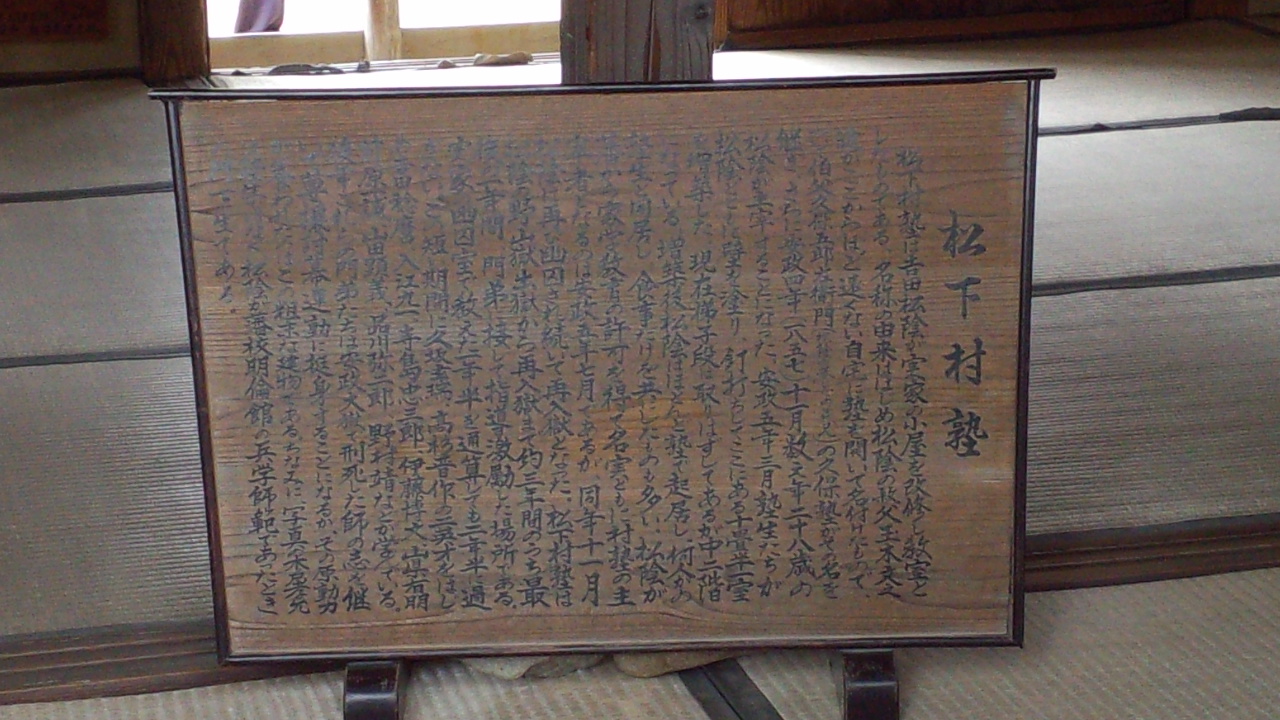 松下村塾
松下村塾は吉田松陰が実家の小屋を改修し教室と
したものである。名称の由来ははじめ松陰の叔父玉木文之
進がここからほど遠くない自宅に塾を開いて名付けたもので、
伯父久保五郎左衛門の久保塾がその名を
継ぎ、さらに安政四年(一八五七)十一月数え年二十八歳の
松陰が主宰することになった。安政五年三月塾生たちが
松陰とともに壁を塗り、釘打ちしてここにある十畳半一室
を増築した。現在梯子段は取りはずしてあるが中二階
になっている。増築後、松陰はほとんど塾で起居し、何人かの
塾生と同居し、食事だけを共にしたものも多い。松陰が
藩から家学教育の許可を得て名実ともに村塾の主
宰者となるのは安政五年七月であるが、同年十一月
には再び幽囚され続いて再入獄となった。松下村塾は
松陰の野山獄出獄から再入獄まで約三年間のうち最
後の一年間、門弟に接して指導激励した場所である。
実家の幽囚室で教えた一年半を通算しても二年半に過
ぎないこの短い期間に久坂玄瑞、高杉晋作の二秀才をはじ
め吉田稔麿、入江九一、寺島忠三郎、伊藤博文、山県有朋
前原一誠、山田顕義、品川弥二郎、野村靖などが学んでいる。
後年これらの門弟たちは安政大獄に刑死した師の志を継
いで尊攘討幕運動に挺身することになるが、その原動力
が養われたこの粗末な建物である。ちなみに写真の木原松
は、松陰が藩校明倫館の兵学師範であったとき
の門下生である。